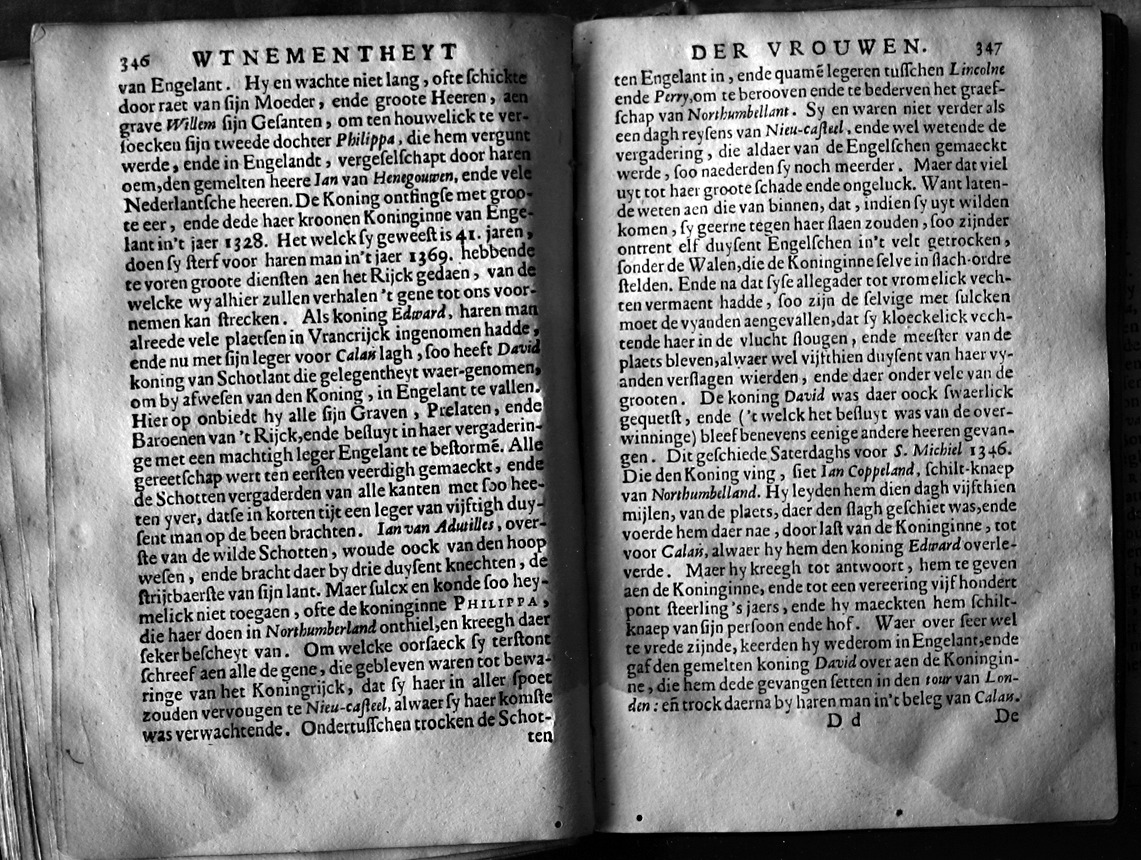 346 WTNEMENTHEYT
van Engelant. Hy en wachte niet lang, ofte ſchickte
door raet van ſijn Moeder, ende groote Heeren, aen
grave Willem ſijn Geſanten, om ten houwelick te ver-
ſoecken ſijn tweede dochter Philippa, die hem vergunt
werde, ende in Engelandt, vergeſelſchapt door haren
oem, den gemelten heere Ian van Henegouwen, ende vele
Nederlantſche heeren. De Koning ontfingſe met groo-
te eer, ende dede haer kroonen Koninginne van Enge-
lant in't jaer 1328. Het welck ſy geweeſt is 41. jaren,
doen ſy ſterf voor haren man in't jaer 1369. hebbende
te voren groote dienſten aen het Rijck gedaen, van de
welcke wy alhier zullen verhalen 't gene tot ons voor-
nemen kan ſtrecken. Als koning Edward, haren man
alreede vele plaetſen in Vrancrijck ingenomen hadde,
ende nu met ſijn leger voor Calań lagh, ſoo heeft David
koning van Schotlant die gelegentheyt waer-genomen,
om by afweſen van den Koning, in Engelant te vallen.
Hier op onbiedt hy alle ſijn Graven, Prelaten, ende
Baroenen van 't Rijck, ende beſluyt in haer vergaderin-
ge met een machtigh leger Engelant te beſtormē. Alle
gereetſchap wert ten eerſten veerdigh gemaeckt, ende
de Schotten vergaderden van alle kanten met ſoo hee-
ten yver, datſe in korten tijt een leger van vijftigh duy-
ſent man op de been brachten. Ian van Adutilles, over-
ſte van de wilde Schotten, woude oock van den hoop
weſen, ende bracht daer by drie duyſent knechten, de
ſtrijtbaerſte van ſijn lant. Maer ſulcx en konde ſoo hey-
melick niet toegaen, ofte de koninginne PHILIPPA,
die haer doen in Northumberland onthiel, en kreegh daer
ſeker beſcheyt van. Om welcke oorſaeck ſy terſtont
ſchreef aen alle de gene, die gebleven waren tot bewa-
ringe van het Koningrijck, dat ſy haer in aller ſpoet
zouden vervougen te Nieu-caſteel, alwaer ſy haer komſte
was verwachtende. Ondertuſſchen trocken de Schot-
ten
DER VROUWEN. 347
ten Engelant in, ende quamē legeren tuſſchen Lincolne
ende Perry, om te berooven ende te bederven het graef-
ſchap van Northumbellant. Sy en waren niet verder als
een dagh reyſens van Nieu-caſteel, ende wel wetende de
vergadering, die aldaer van de Engelſchen gemaeckt
werde, ſoo naederden ſy noch meerder. Maer dat viel
uyt tot haer groote ſchade ende ongeluck. Want laten-
de weten aen die van binnen, dat, indien ſy uyt wilden
komen, ſy geerne tegen haer ſlaen zouden, ſoo zijnder
ontrent elf duyſent Engelſchen in't velt getrocken,
ſonder de Walen, die de Koninginne ſelve in ſlach-ordre
ſtelden. Ende na dat ſyſe allegader tot vromelick vech-
ten vermaent hadde, ſoo zijn de ſelvige met ſulcken
moet de vyanden aengevallen, dat ſy kloeckelick vech-
tende haer in de vlucht ſlougen, ende meeſter van de
plaets bleven, alwaer wel vijfthien duyſent van haer vy-
anden verſlagen wierden, ende daer onder vele van de
grooten. De koning David was daer oock ſwaerlick
gequetſt, ende ('t welck het beſluyt was van de over-
winninge) bleef benevens eenige andere heeren gevan-
gen. Dit geſchiede Saterdaghs voor S. Michiel 1346.
Die den Koning ving, hiet Ian Coppeland, ſchilt-knaep
van Northumbelland. Hy leyden hem dien dagh vijfthien
mijlen, van de plaets, daer den ſlagh geſchiet was, ende
voerde hem daer nae, door laſt van de Koninginne, tot
voor Calań, alwaer hy hem den koning Edward overle-
verde. Maer hy kreegh tot antwoort, hem te geven
aen de Koninginne, ende tot een vereering vijf hondert
pont ſteerling 's jaers, ende hy maeckten hem ſchilt-
knaep van ſijn perſoon ende hof. Waer over ſeer wel
te vrede zijnde, keerden hy wederom in Engelant, ende
gaf den gemelten koning David over aen de Koningin-
ne, die hem dede gevangen ſetten in den tour van Lon-
den: en̄ trock daerna by haren man in't beleg van Calań.
D d De